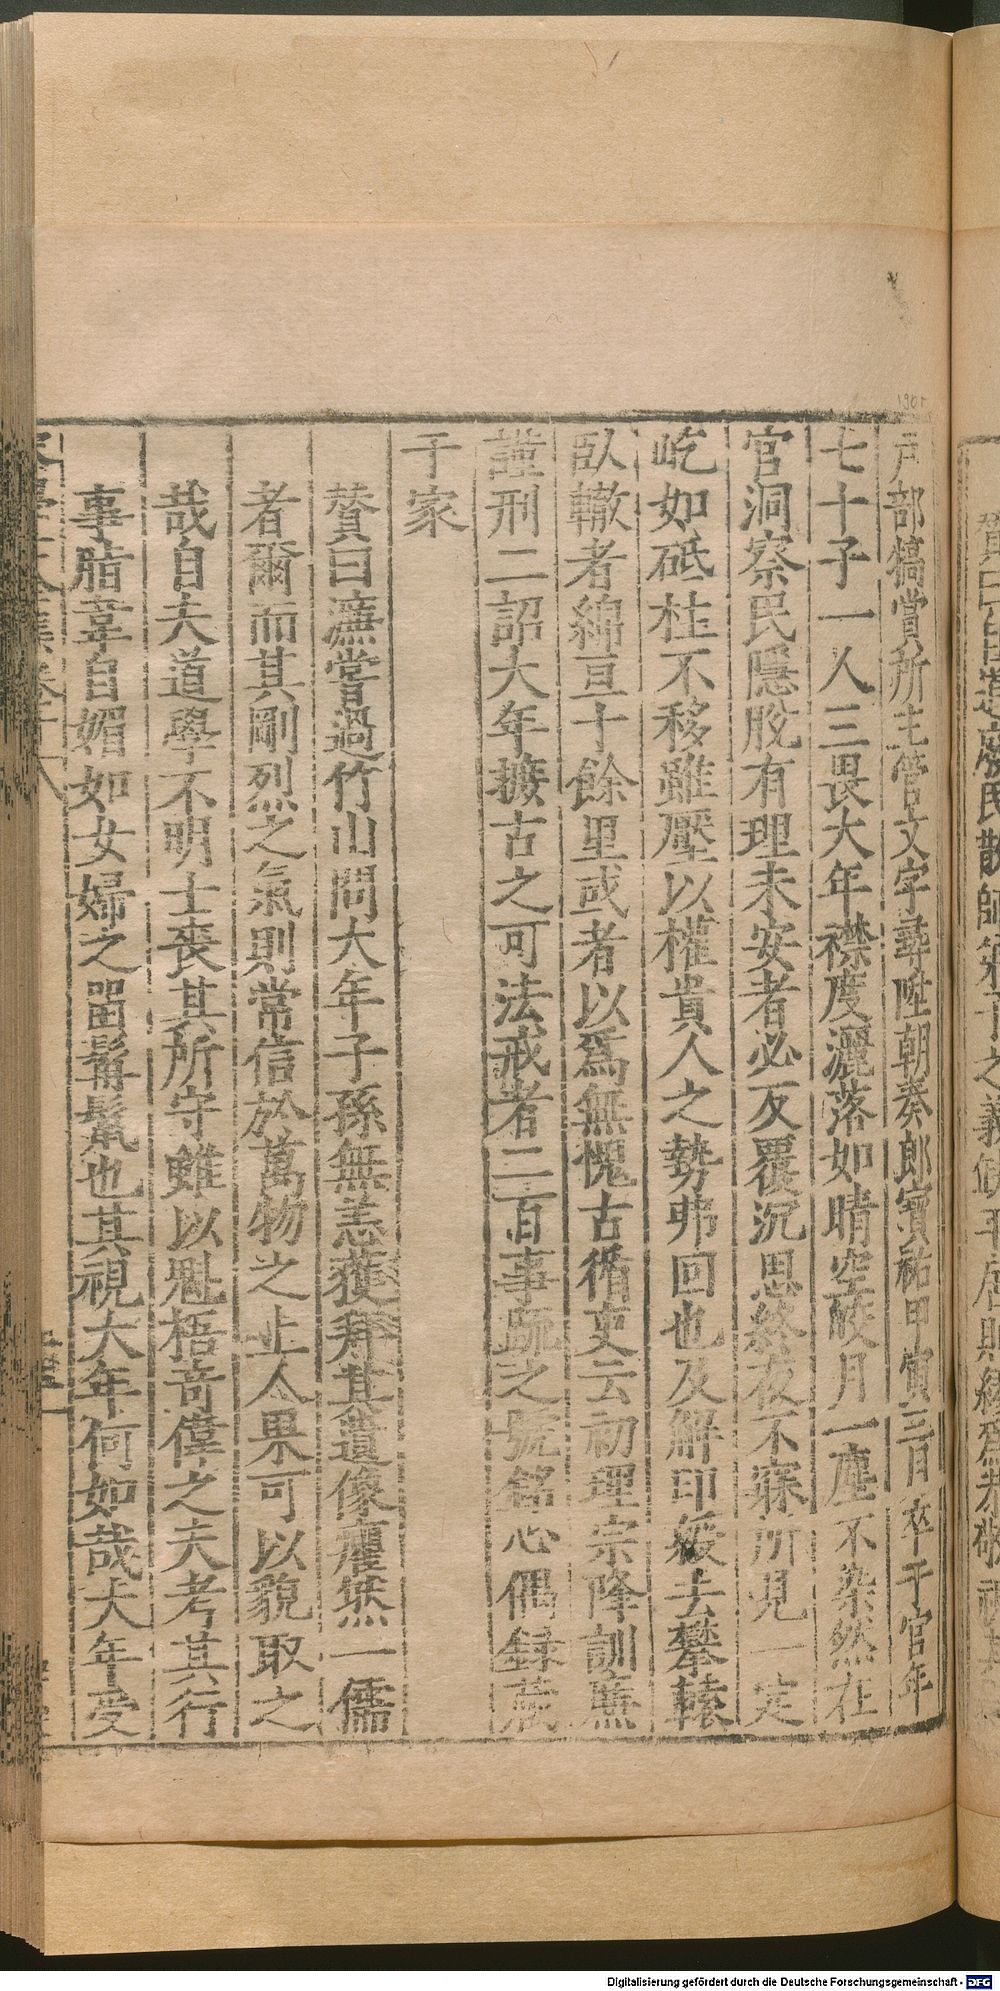 戶部犒賞所主管文字尋陞朝奏郎寳祐甲寅三月卒于官年
七十子一人三畏大年襟度灑落如晴空皎月一塵不染然在
官洞察民隱脫有理未安者必反覆沉思終夜不寐所見一定
屹如砥柱不移雖壓以權貴人之勢弗回也及解印綬去攀轅
臥轍者綿亘十餘里或者以爲無愧古循吏云初理宗降訓廉
謹刑二詔大年摭古之可法戒者二百事疏之號銘心偶録蔵
于家
贊曰濂嘗過竹山問大年子孫無恙獲拜其遺像癯然一儒
者爾而其剛烈之氣則常信於萬物之上人果可以貌取之
哉自夫道學不明士喪其所守雖以魁梧奇偉之夫考其行
事脂韋自媚如女婦之畱鬅鬙也其視大年何如哉大年受
Digitalisierung gefördert durch die Deutsche Forschungsgemeinschaft - DFG